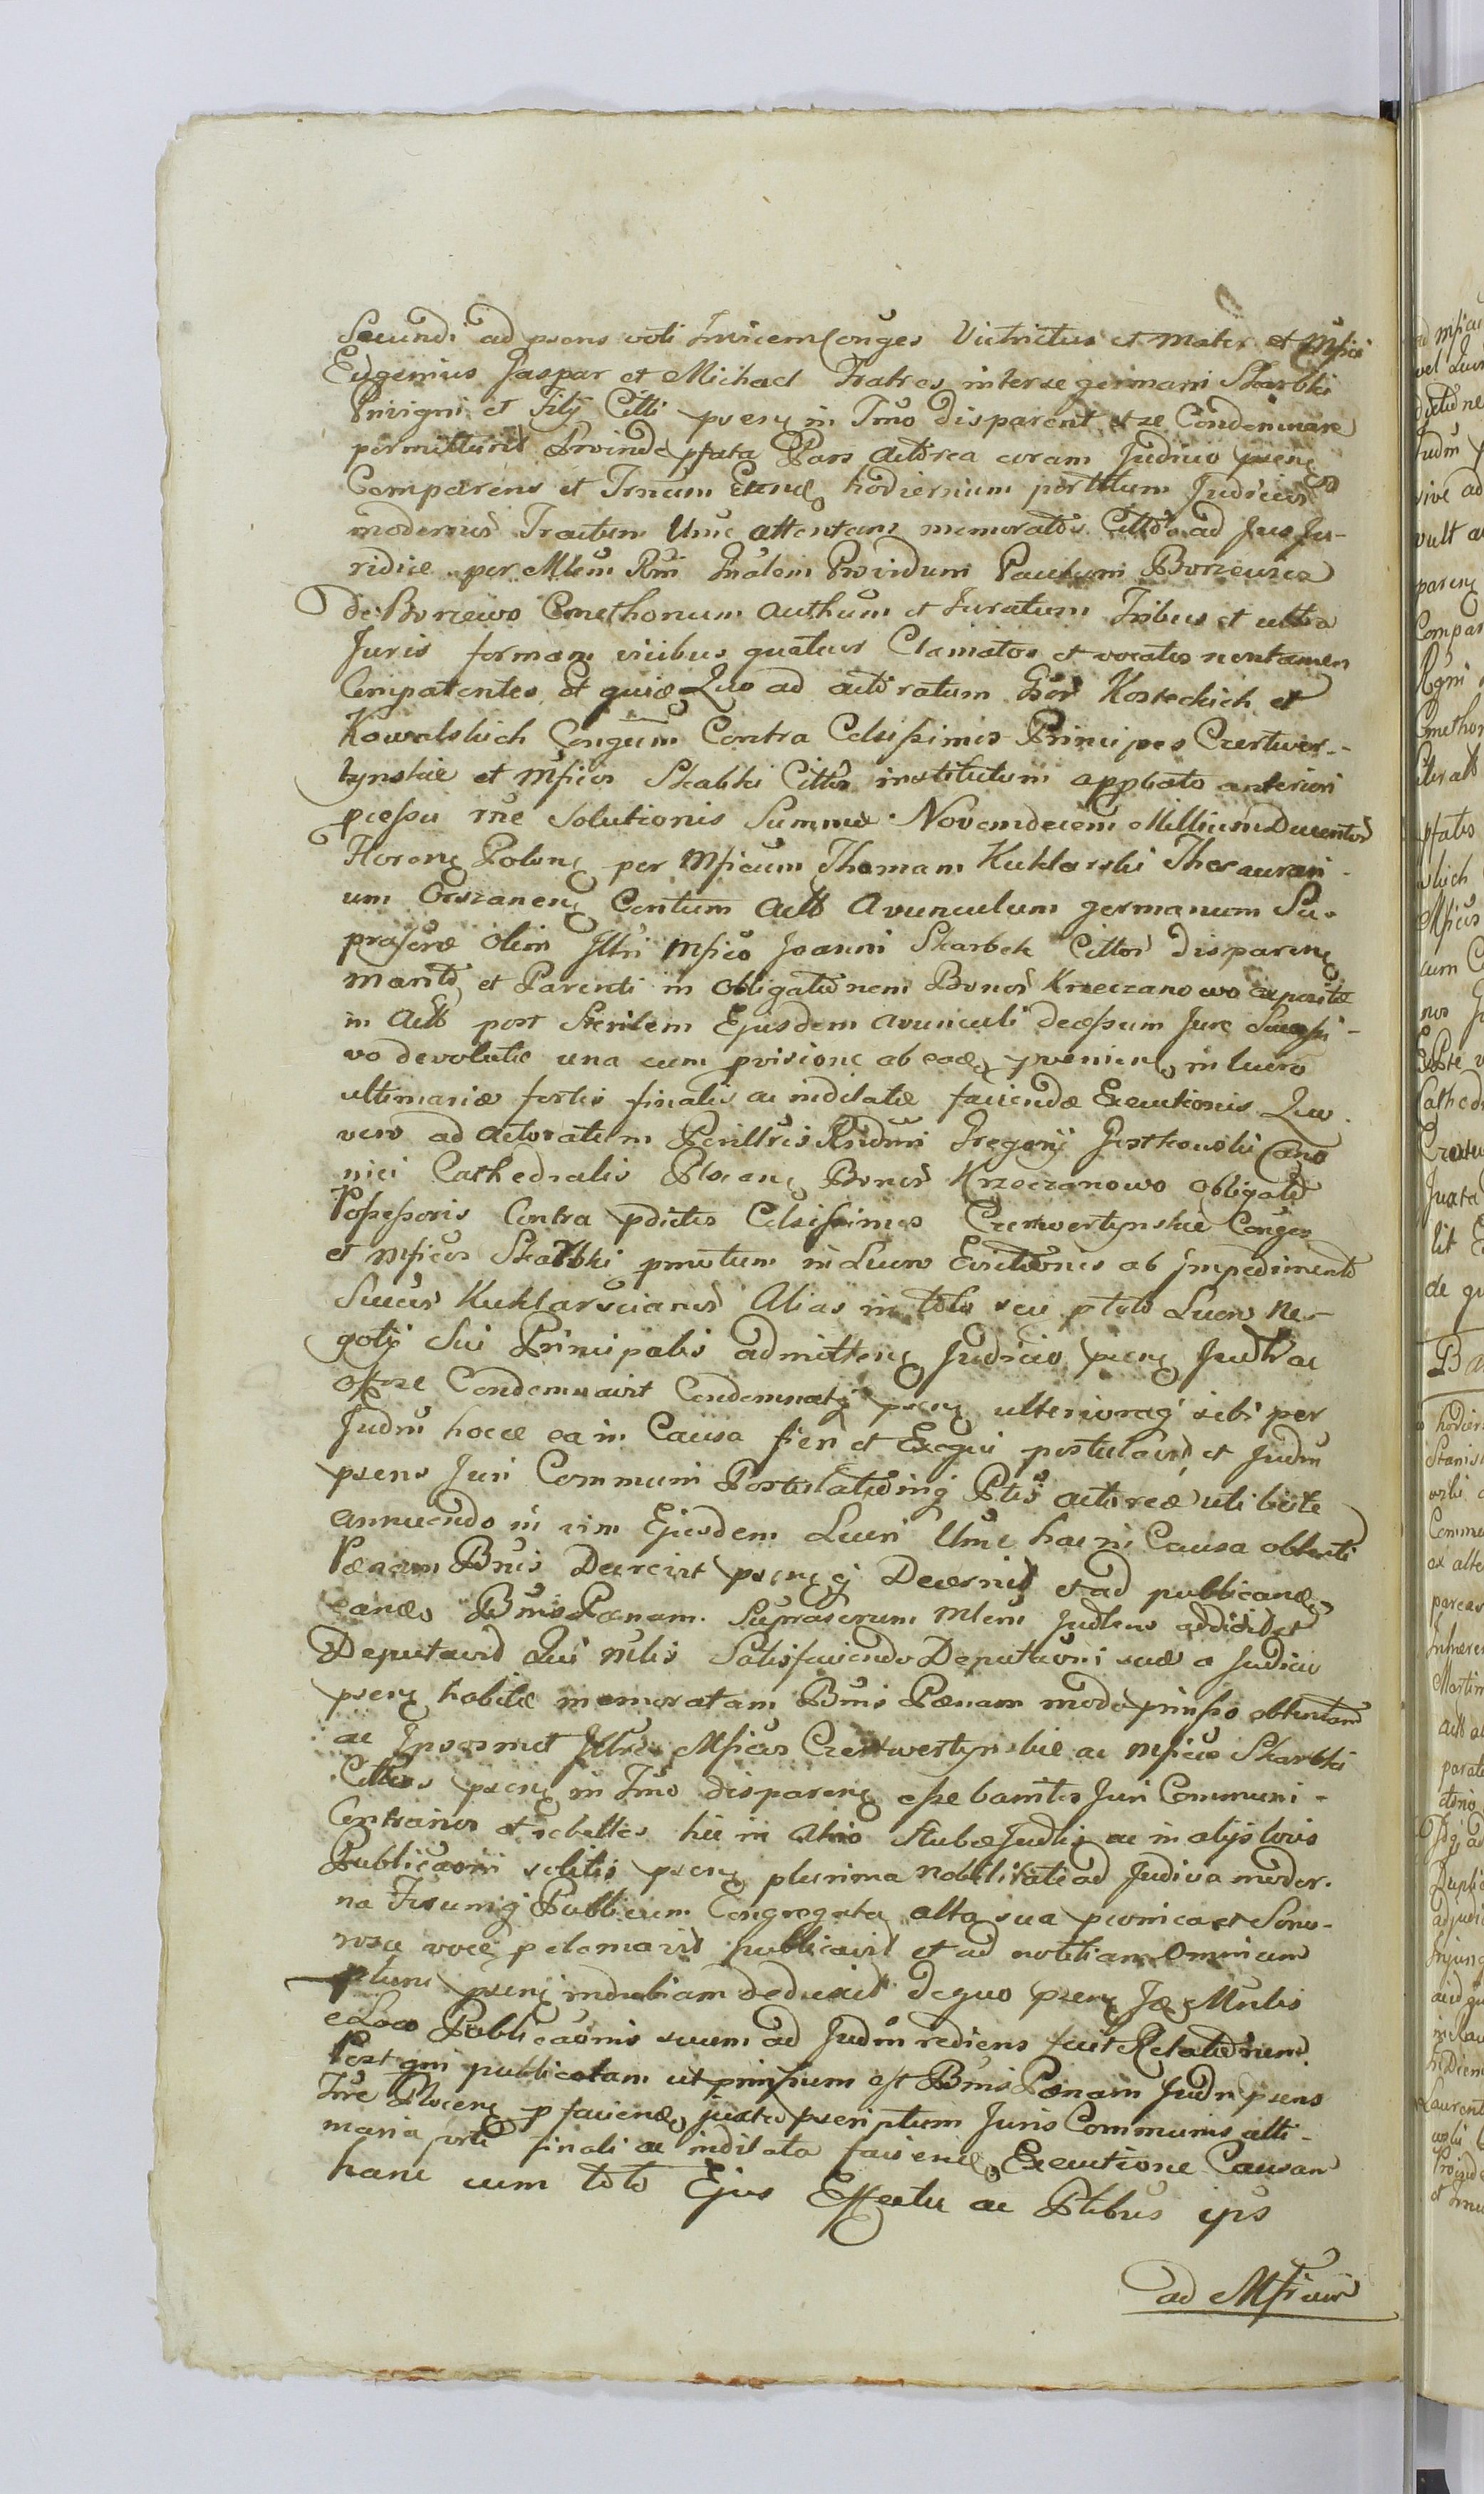 Secundi ad psens voti Invicem Conges Victrictus et Mater et Mficos
Eugenius Jaspar et Michael Fratres inter se germani Skarbki
Privigni et Filij Citti psens in Tmo disparent et se Condemnare
permitterunt Proinde pfata Pars Actorea coram Judicio psenti
Comparens et Trnum Eunde hodiernum perttum Judicior
modernor Tractum Unc attentam memoratos Cittos ad Jus Ju-
ridice per Mlem Rni Gnalem Providum Paulum Borzewicz
de Borzewo Cmethonum authum et Juratum Tribus et ultra
Juris formam vicibus quatuor Clamatos et vocatos nontamen
Comparentes Et quia Quo ad actoratum Gsor Kosteckich et
Kowalskich Congum Contra Celsissimos Principes Czertwer-
tynskie et Mficos Skabki Cittos institutum appbato anteriori
pcessu rne Solutionis Summae Novemdecem Millium Ducentor
Floreng Polong per Mficum Thomam Kuklarski Thesaurari-
um Orszaneng Contum Actt Avunculum germanum Su-
prascrae olim Illri Mfico Joanni Skarbek Cittor Dispareng
Marito et Parenti in Obligationem Bonor Krzeczanowo
in Actt post Sterilem Ejusdem avunculi decessum Jure Successi-
vo devolutae una cum pvisione ab eadem pveniente in lucro
ultimariae fortis finalis ac indilatae faciendae Executionis Quo
vero ad Actoratum Perillris Rndmi Gregorij Jostkowski Cano
nici Cathedralis Plocens Bonor Krzeczanowo Obligato
Possessoris Contra pdictos Celsissimos Czetwertynskie Conges
et Mficos Skarbki pmotum in Lucro Evictionis ab impedimento
Succor Kuklarscianor Alias in toto seu p toto Lucro Ne-
gotij Sui Principalis admitteng Judicio pseng Judtr ac
offose Condemnavit Condemnatq pseng ulterioraq sibi per
Judm hocce ea in Causa fieri et Exequi postulavit et Judm
psens Juri Communi Postulationiq Ptis actoreae uti licite
annuendo in vim Ejusdem Lucri Unc hac in Causa obtenti
Paenam Bnis Decrevit psensq Decernit et ad publicandam
eandem Bnis Paenam Suprascrum Mlem Judlem addidit et
Deputavit Qui Mlis Satisfaciendo Deputaoni suae a Judicio
pseng habitae memoratam Bnis Paenam modo pmisso obtentam
ac Ipsosmet Illres Mficos Czertwertynskie ac Mficos Skarbki
Cittos pseng in Tmo dispareng esse banitos Juri Communi
Contrarios et rebelles hic in Atrio Stubae Judlis ac in alijs locis
Publicaoni solitis pseng plurima nobilitate ad Judicia moder-
na Forumq Publicum Congregata alta sua pconica et Sono-
rosa voce pclamavit publicavit et ad notitiam Omnium
ptium pseng indubiam deduxit dequo pseng Is Mnlis
e Loco Publicaonis suum ad Judm rediens fecit Relationem
Post qm publicatam ut pmissum est Bnis Paenam Judm psens
Tre Ploceng p faciende juxta pscriptum Juris Communis ulti-
maria forti finali ac indilata facienda Executione Causam
hanc cum toto Ejus Effectu ac Ptibus ips
ad Mficum